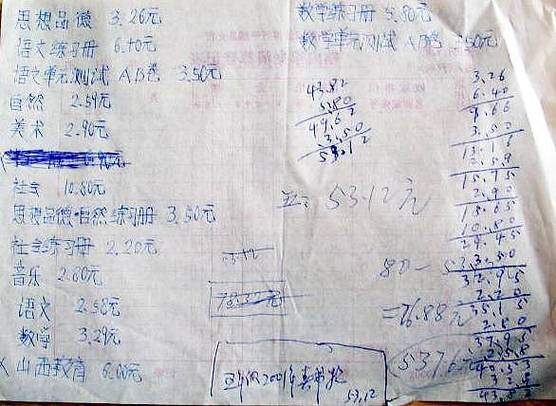 思想品德 3.26元
语文练习册 6.40元
语文单元测试 A.B卷 3.50元
自然 2.59元
美术 2.90元
社会 10.80元
思想品德•自然练习册 3.50元
社会练习册 2.20元
音乐 2.80元
语文 2.58元
数学 3.29元
山西教育 6.00元
数学练习册 5.80元
数学单元测试 AB卷 3.50元
43.82
5.80
49.62
3.50
53.12
53.12元
80-
=26.88元
53.76元
53.12
3.26
6.40
9.66
3.50
13.16
2.59
15.75
2.90
18.65
10.80
29.45
3.50
32.95
2.20
35.15
2.80
37.95
2.58
40.53
3.29
43.82